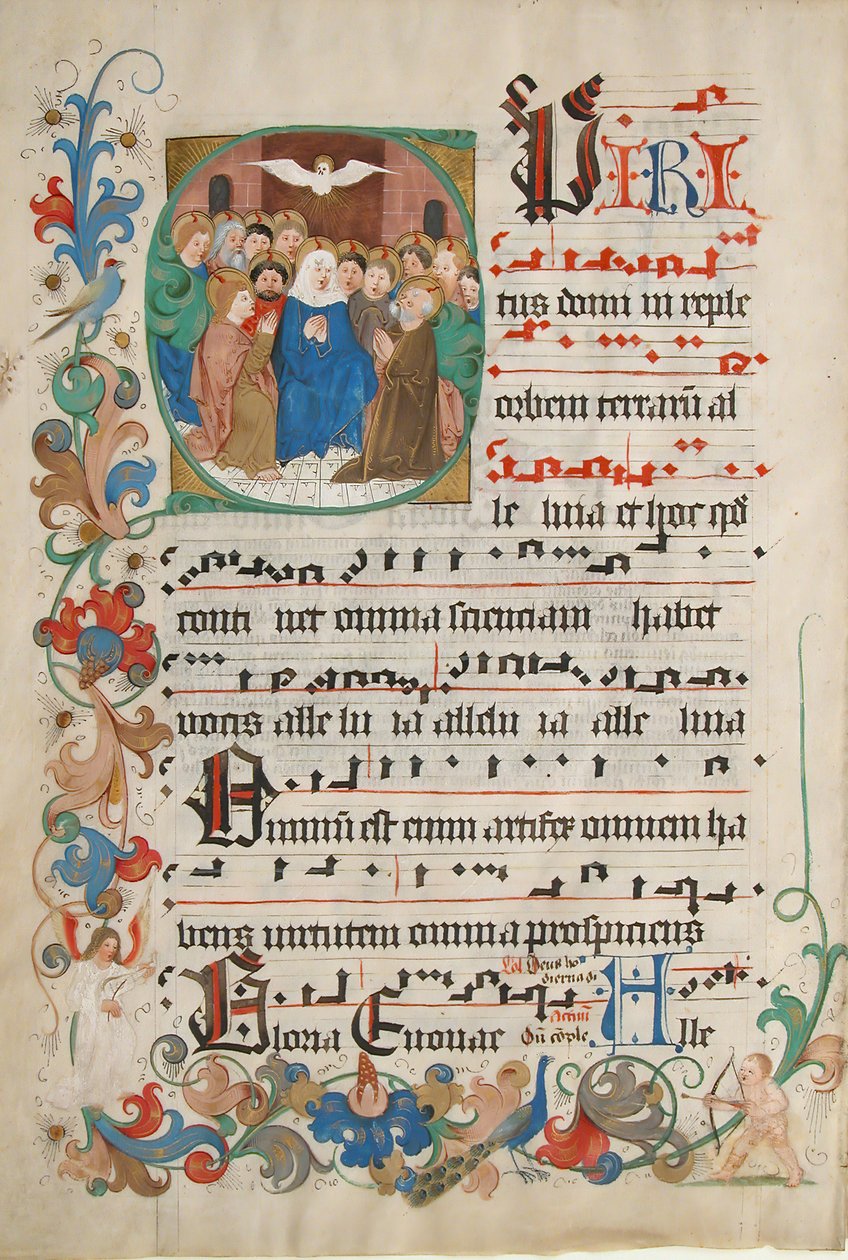 SPIRI
tus domi ni reple
orbem terrarū al
le luia et hoc qđ
conti net omnia scientiam habet
vocis alle lu ia allelu ia alle luia
Omniū est enim artifex omnem ha
bens uirtutem omnia prospiciens
Gloria Euouae Col Deus ho
dierna di
Actuū
Dū cōple Alle